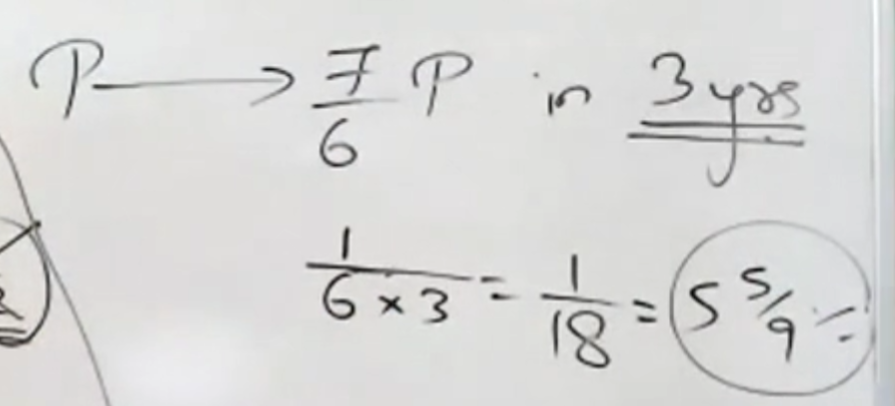 P → 7/6 P in 3 yrs
1/(6 × 3) = 1/18 = 5 5/9 %